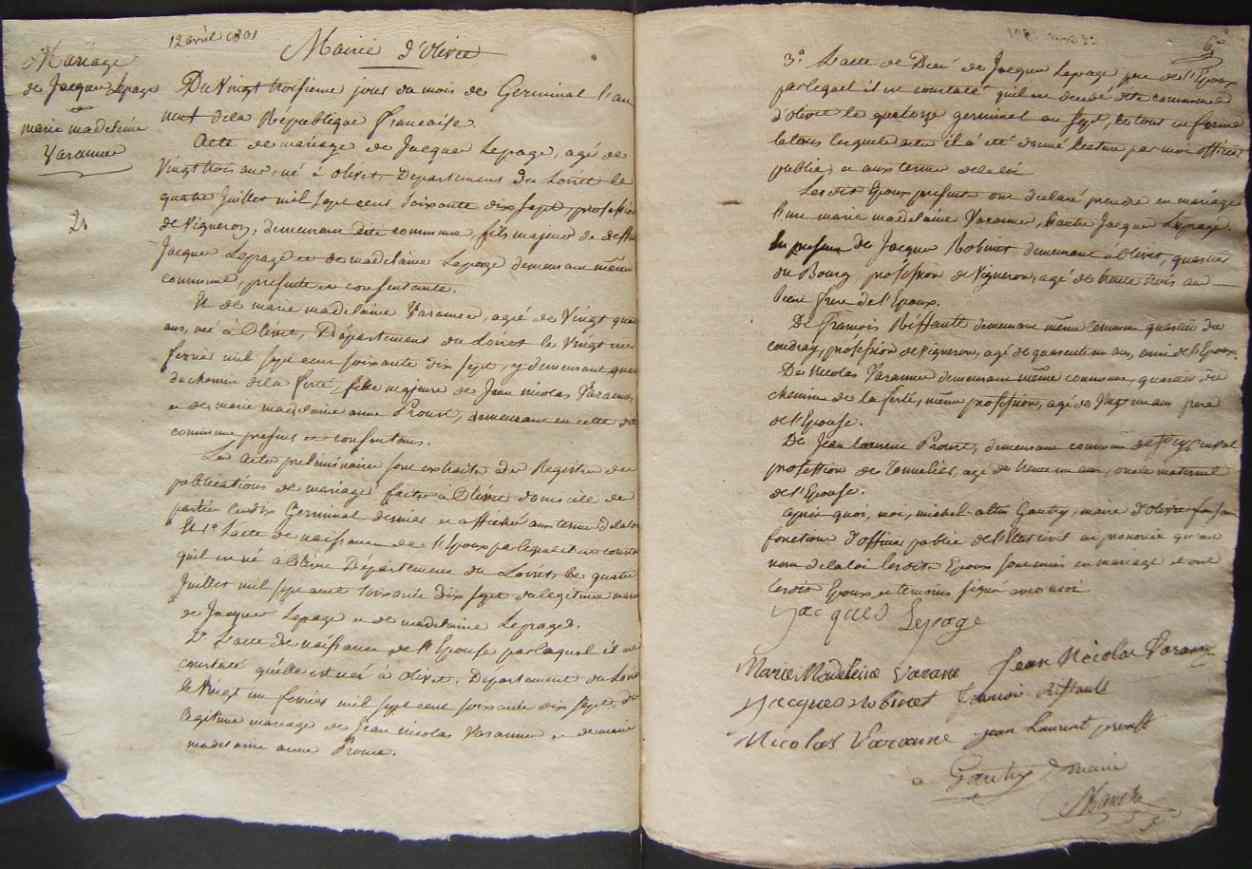 12 avril 1801
Mairie d'Olivet
Mariage
de Jacques Lepage
et
marie madelaine
Varanne
Du Vingt troisieme jour du mois de Germinal l'an
neuf de la Republique francaise.
Acte de mariage de Jacques Lepage, agé de
Vingt trois ans, né à Olivet, Departement du Loiret le
quatre Juillet mil sept cent soixante dix sept, profession
de Vigneron, demeurant dite commune, fils majeur de deffunt
Jacques Lepage et de madelaine Lepage demeurant même
commune, presente et consentante.
Et de marie madelaine Varanne, agée de Vingt quatre
ans, née à Olivet, Département du Loiret le Vingt un
fevrier mil sept cent soixante dix sept, y demeurant quartier
du chemin de la ferté, fille majeure de Jean nicolas Varanne,
et de marie madelaine anne Proust, demeurant en cette dite
commune presens et consentans.
Les actes preliminaires sont extraits du Registre des
publications de mariage faites à Olivet domicile des
parties le dix Germinal dernier et affichés aux termes de la loi
Et 1º L'acte de naissance de l'Epoux par lequel il est constaté
qu'il est né à Olivet Département du Loiret, le quatre
Juillet mil sept cent soixante dix sept du legitime mariage
de Jacques Lepage et de madelaine Lepage.
2º L'acte de naissance de l'Epouse par lequel il est
constaté quelle est née à Olivet, Departement du Loiret
le Vingt un fevrier mil sept cent soixante dix sept, du
legitime mariage de Jean nicolas Varanne et de marie
madelaine anne Proust.
3º L'acte de Decé de Jacques Lepage pere de l'Epoux
par lequel il est constaté qu'il est decedé dite commune
d'olivet le quatorze germinal an sept, le tout en forme
de tous lesquels actes il a été donné lecture par moi officier
public, et aux termes de la loi
Lesdits Epoux presents ont declaré prendre en mariage
l'une marie madelaine Varanne, l'autre Jacques Lepage
En presence de Jacques Robinet demeurant à Olivet, quartier
du Bourg profession de Vigneron, agé de trente trois ans
beau frere de l'Epoux.
De francois Riffault demeurant même commune quartier du
coudray, profession de Vigneron, agé de quarente un ans, ami de l'Epoux.
De Nicolas Varanne demeurant même commune, quartier du
chemin de la ferté, même profession, agé de Vingt un ans frere
de l'Epouse.
De Jean laurent Proust, demeurant commune de
profession de Tonnelier, agé de trente un ans, oncle maternel
de l'Epouse.
Après quoi, moi, michel Gautry, maire d'olivet faisant
fonctions d'officier public de l'Etat civil ai prononcé qu'au
nom de la loi lesdits Epoux sont unis en mariage et ont
lesdits Epoux et temoins signé avec moi
jacques Lepage
Marie Madeleine Varane Jean Nicolas Varanne
jacques robinet francois Riffault
Nicolas Varanne jean laurent proust
Gautry maire